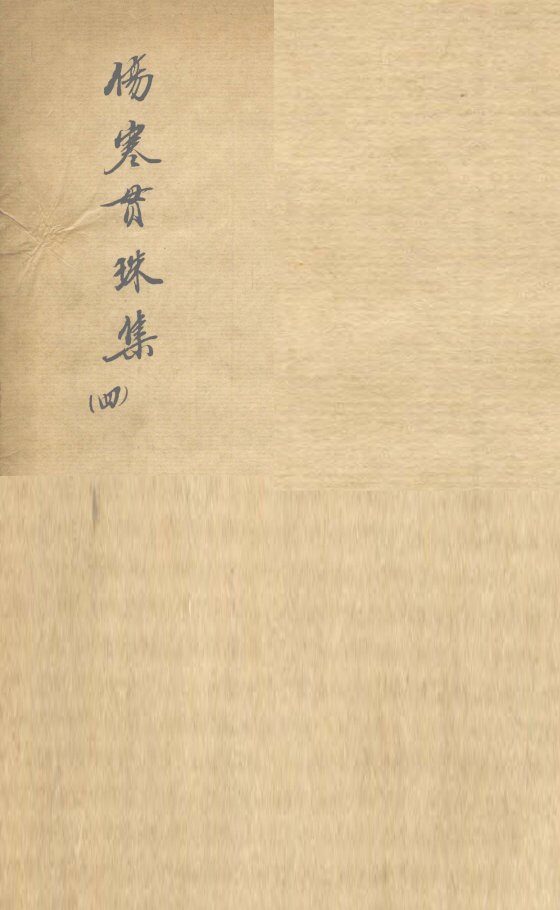 傷寒貫珠集
(四)